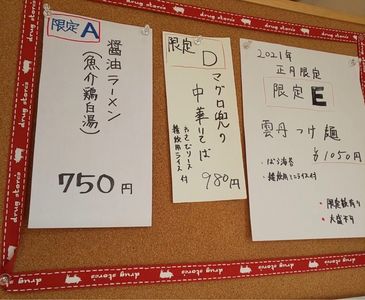 限定A
醤油ラーメン
(魚介鶏白湯)
750円
限定D
マグロ兜の
中華そば
雑炊用ライス付
980円
2021年
正月限定
限定E
雲丹つけ麺
¥1050円
・ばら海苔
・雑炊用ミニライス付
・限定数有り
・大盛不可
drug store's